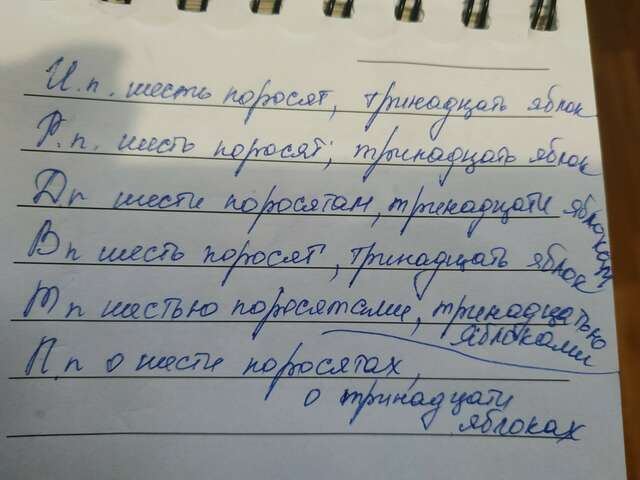 И.п. шесть поросят, тринадцать яблок
Р.п. шесть поросят, тринадцать яблок
Дп шести поросятам, тринадцати яблокам
Вп шесть поросят, тринадцать яблок
Тп шестью поросятами, тринадцатью яблоками
П.п о шести поросятах,
о тринадцати
яблоках